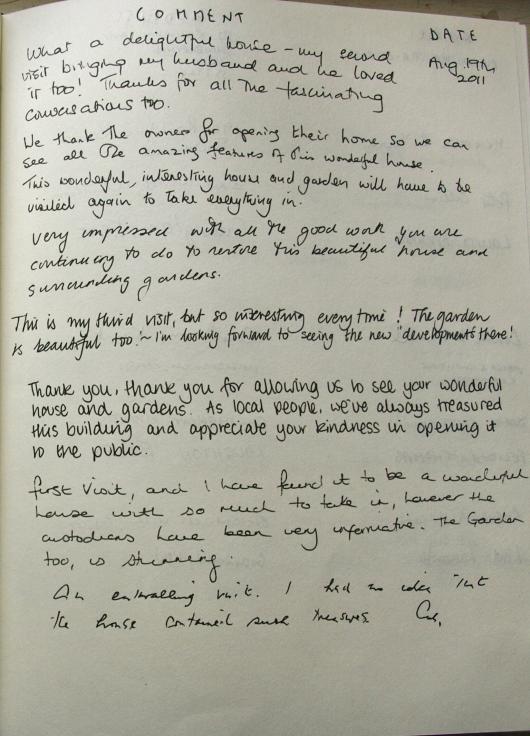 COMMENT
DATE
What a delightful house - my second
visit bringing my husband and he loved
it too! Thanks for all the fascinating
conversations too.
Aug 19th
2011
We thank the owners for opening their home so we can
see all the amazing features of this wonderful house.
This wonderful, interesting house and garden will have to be
visited again to take everything in.
Very impressed with all the good work you are
continuing to do to restore this beautiful house and
surrounding gardens.
This is my third visit, but so interesting every time! The garden
is beautiful too ~ I'm looking forward to seeing the new 'developments there!
Thank you, thank you for allowing us to see your wonderful
house and gardens. As local people, we've always treasured
this building and appreciate your kindness in opening it
to the public.
First visit, and I have found it to be a wonderful
house with so much to take in, however the
custodians have been very informative. The Garden
too, is stunning.
An enthralling visit. I had no idea that
the house contained such treasures